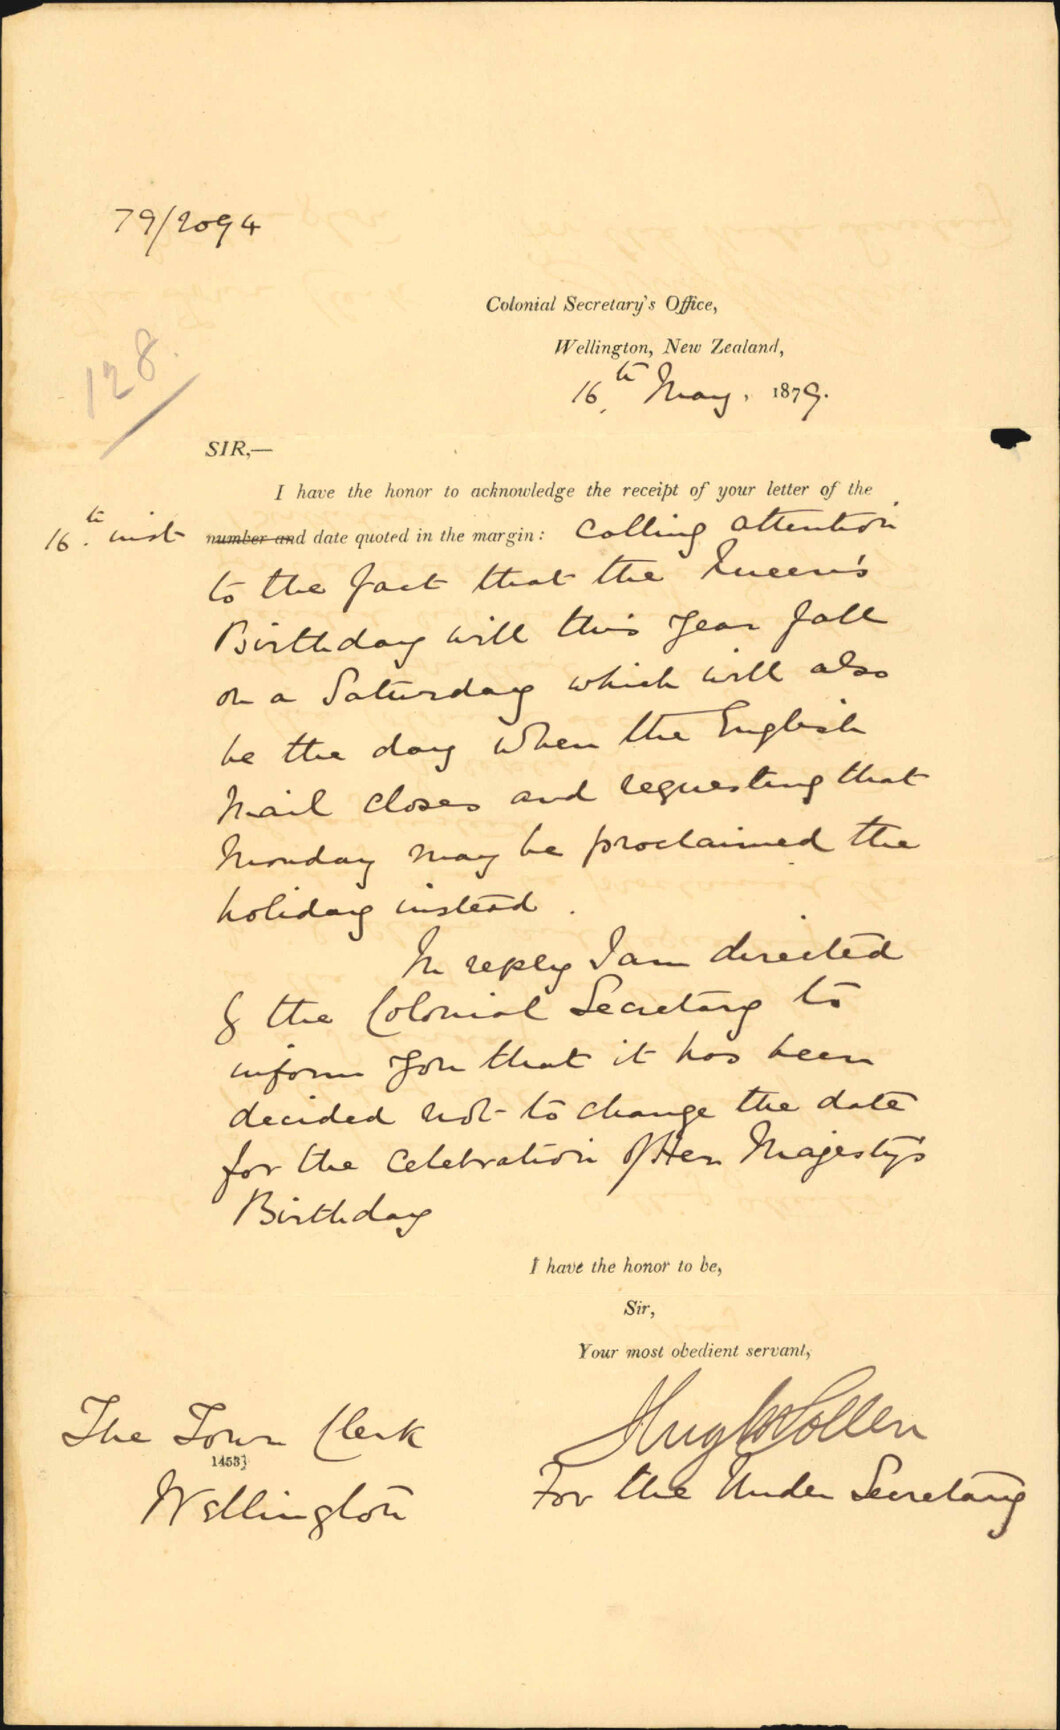 79/2094
Colonial Secretary's Office,
Wellington, New Zealand,
128.
16th May, 1879.
SIR,—
I have the honor to acknowledge the receipt of your letter of the
16th inst number and date quoted in the margin: calling attention
to the fact that the Queen's
Birthday will this year fall
on a Saturday which will also
be the day when the English
Mail closes and requesting that
Monday may be proclaimed the
holiday instead.
In reply I am directed
by the Colonial Secretary to
inform you that it has been
decided not to change the date
for the celebration of Her Majesty's
Birthday
I have the honor to be,
Sir,
Your most obedient servant,
Hugh Pollen
For the Under Secretary
The Town Clerk
1453}
Wellington